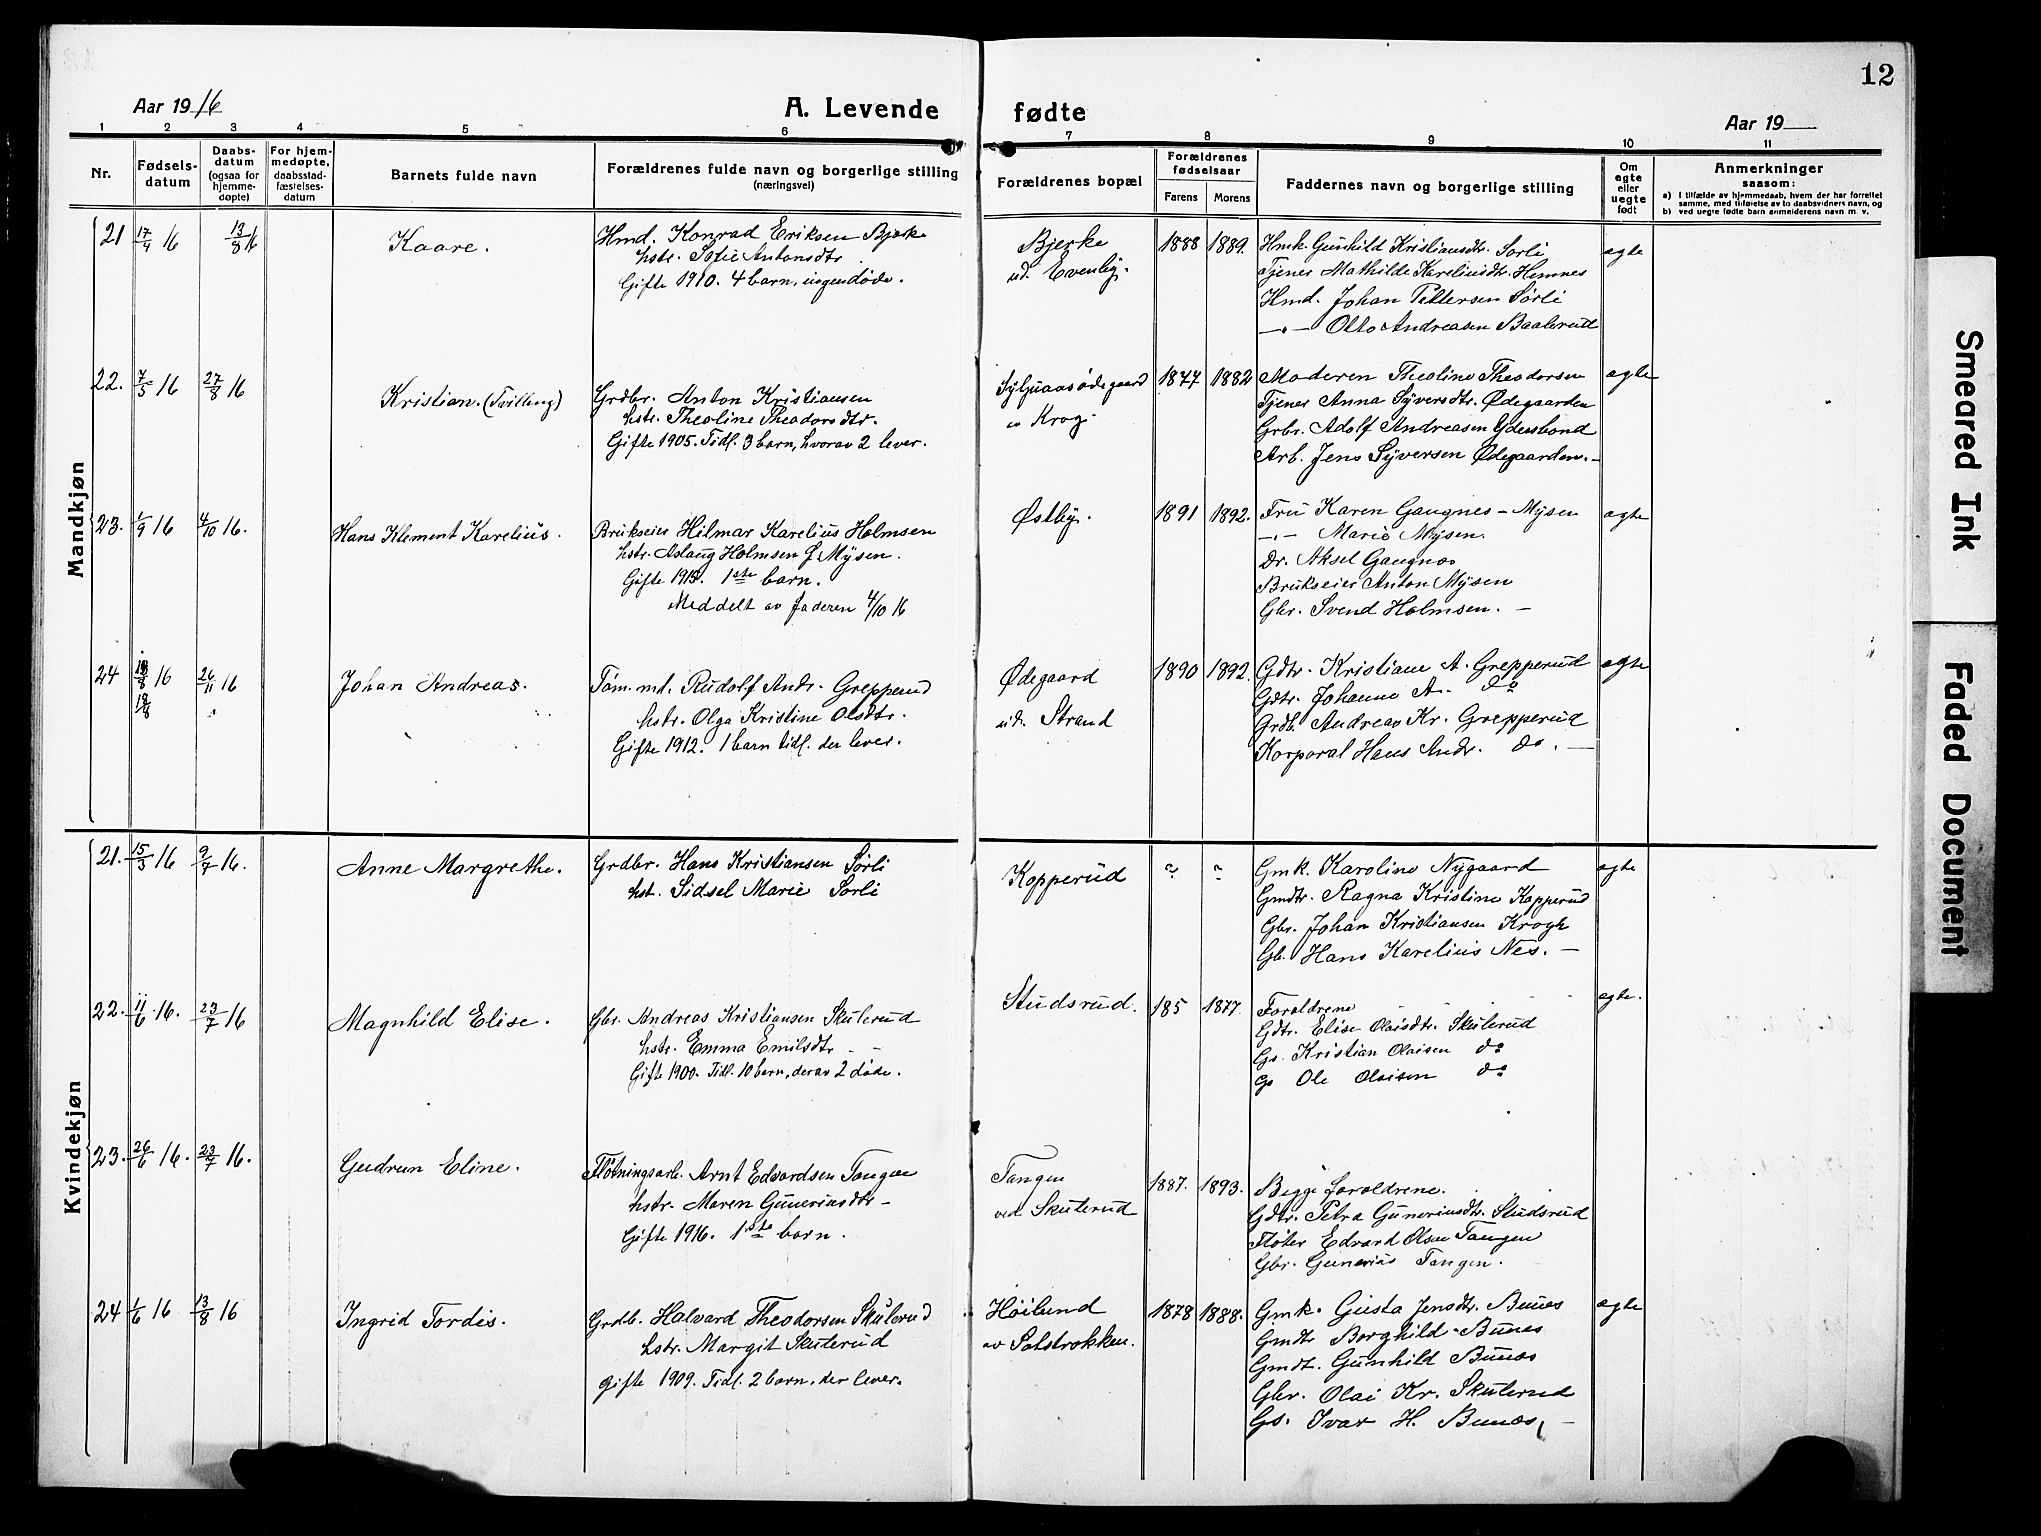 12
Aar 1916
A. Levende fødte
Aar 19
1 2 3 4 5 6 7 8 9 10 11
Nr.
Fødsels-
datum
Daabs-
datum
(ogsaa for
hjemme-
døpte)
For hjem-
medøpte,
daabsstad-
fæstelses-
datum
Barnets fulde navn
Forældrenes fulde navn og borgerlige stilling
(næringsvei)
Forældrenes bopæl
Forældrenes
fødselsaar
Farens Morens
Faddernes navn og borgerlige stilling
Om
egte
eller
uegte
født
Anmerkninger
saasom:
a) I tilfælde av hjemmedaab, hvem der har forrettet
samme, med tilføielse av to daabsvidners navn, og
b) ved uegte fødte barn anmelderens navn m. v.
Mandkjøn
21 17/4 16 13/8 16 Kaare.
Hmd. Konrad Eriksen Bjerke
hstr. Sofie Antonsdtr
Gifte 1910. 4 barn, ingen døde.
Bjerke
ud. Evenby.
1888 1889.
Hmk. Gunhild Kristiansdtr. Sørli
Tjenes Mathilde Kareliusdtr. Hemnes
Hmd. Johan Pettersen Sørli
—„— Otto Andreasen Baalerud
egte
22. 7/5 16 27/8 16 Kristian. (Tvilling)
Grdbr. Anton Kristiansen
hstr. Theoline Theodorsdtr.
Gifte 1905. Tidl. 3 barn, hvorav 2 lever.
Krog.
1877 1882
Moderen Theoline Theodorsen
Tjenes Anna Syversdtr. Ødegaarden
Grbr. Adolf Andreasen Ydersbond
Arb. Jens Syversen Ødegaarden. –
egte
23. 1/9 16 4/10 16. Hans Klement Karelius.
Brukseier Hilmar Karelius Holmsen
hstr. Aslaug Holmsen f. Mysen.
Gifte 1915. 1ste barn.
Meddelt av faderen 4/10 16
Østby.
1891 1892.
Fru Karen Gaugnes – Mysen
—„— Marie Mysen.
Dr. Aksel Gaugnes
Brukseier Anton Mysen
Gbr. Svend Holmsen. –
egte
24 16 26/11 16 Johan Andreas.
Tøm.mt. Rudolf Andr. Grepperud
hstr. Olga Kristine Olsdtr.
Gifte 1912. 1 barn tidl. der lever.
Ødegaard
ud. Strand
1890 1892.
Gdtr. Kristiane A. Grepperud
Gdtr. Johanne A. do
Grdb. Andreas Kr. Grepperud
Korporal Hans Andr. do. –
egte
Kvindekjøn
21. 15/3 16 9/7 16. Anne Margrethe.
Grdbr. Hans Kristiansen Sørli
hst. Sidsel Marie Sørli
Kopperud
~ ~
Gmk. Karoline Nygaard
Gmdtr. Ragna Kristine Kopperud
Gbr. Johan Kristiansen Krogh
Gb. Hans Karelius Nes. –
egte
22. 11/6 16. 23/7 16 Magnhild Elise.
Gbr. Andreas Kristiansen Skulerud
hstr. Emma Emilsdtr – –
Gifte 1900. Tidl. 10 barn, derav 2 døde.
Studsrud.
185 1877.
Forældrene
Gdtr. Elise Olaisdtr. Skulerud
Gs. Kristian Olaisen do
Gs Ole Olaisen do
egte.
23. 26/6 16. 23/7 16. Gudrun Eline.
Fløtningsarb. Arnt Edvardsen Tangen
hstr. Maren Guneriusdtr –
Gifte 1916. 1ste barn.
Tangen
ved Skulerud
1887. 1893.
Begge forældrene.
Gdtr. Petra Guneriusdtr. Studsrud
Fløter Edvard Olsen Tangen
Gbr. Gunerius Tangen.
24 1/6 16 13/8 16 Ingrid Tordis.
Grdb. Halvard Theodorsen Skulerud
hstr. Margit Skulerud
gifte 1909. Tidl. 2 barn, der lever.
Høilund
av Solstrokken.
1878 1888.
Gmk. Gusta Jensdtr. Bunes
Gmdtr Borghild Bunes
Gmdt. Gunhild Bunes
Gbr. Olai Kr. Skulerud
Gs. Ivar H. Bunes, –
egte
Smeared Ink
Faded Document